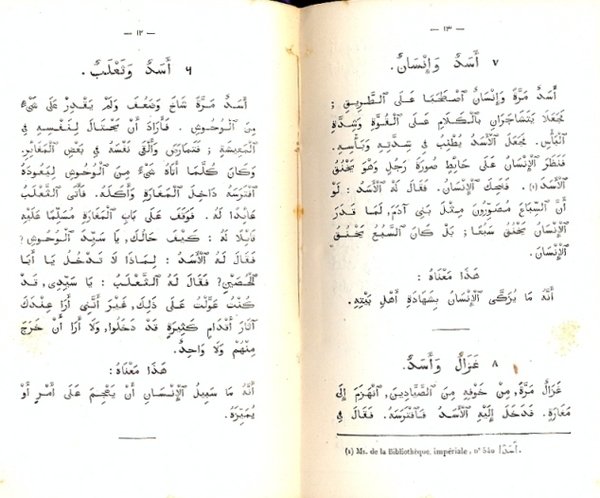 — ١٢ —
٦ أَسَدٌ وَثَعْلَبٌ.
أَسَدٌ مَرَّةً شَاخَ وَضَعُفَ وَلَمْ يَقْدِرْ عَلَى شَيْءٍ
مِنَ ٱلْوُحُوشِ . فَأَرَادَ أَنْ يَحْتَالَ لِنَفْسِهِ فِي
ٱلْمَعِيشَةِ ; فَتَمَارَضَ وَأَلْقَى نَفْسَهُ فِي بَعْضِ ٱلْمَغَايِرِ.
وَكَانَ كُلَّمَا أَتَاهُ شَيْءٌ مِنَ ٱلْوُحُوشِ لِيَعُودَهُ
ٱفْتَرَسَهُ دَاخِلَ ٱلْمَغَارَةِ وَأَكَلَهُ. فَأَتَى ٱلثَّعْلَبُ
عَايِدًا لَهُ . فَوَقَفَ عَلَى بَابِ ٱلْمَغَارَةِ مُسَلِّمًا عَلَيْهِ
قَايِلًا لَهُ : كَيْفَ حَالُكَ، يَا سَيِّدَ ٱلْوُحُوشِ؟
فَقَالَ لَهُ ٱلْأَسَدُ : لِمَاذَا لَا تَدْخُلُ يَا أَبَا
ٱلْحُصَيْنِ؟ فَقَالَ لَهُ ٱلثَّعْلَبُ : يَا سَيِّدِي، قَدْ
كُنْتُ عَوَّلْتُ عَلَى ذٰلِكَ، غَيْرَ أَنَّنِي أَرَا عِنْدَكَ
آثَارَ أَقْدَامٍ كَثِيرَةٍ قَدْ دَخَلُوا، وَلَا أَرَا أَنْ خَرَجَ
مِنْهُمْ وَلَا وَاحِدٌ.
هٰذَا مَعْنَاهُ :
أَنَّهُ مَا سَبِيلُ ٱلْإِنْسَانِ أَنْ يَهْجِمَ عَلَى أَمْرٍ أَوْ
يُمَيِّزَهُ.
— ١٣ —
٧ أَسَدٌ وَإِنْسَانٌ.
أَسَدٌ مَرَّةً وَإِنْسَانٌ ٱصْطَحَبَا عَلَى ٱلطَّرِيقِ ;
فَجَعَلَا يَتَشَاجَرَانِ بِٱلْكَلَامِ عَلَى ٱلْقُوَّةِ وَشِدَّةِ
ٱلْبَأْسِ. فَجَعَلَ ٱلْأَسَدُ يُطْنِبُ فِي شِدَّتِهِ وَبَأْسِهِ.
فَنَظَرَ ٱلْإِنْسَانُ عَلَى حَايِطٍ صُورَةَ رَجُلٍ وَهُوَ يَخْنُقُ
ٱلْأَسَدَ (١). فَضَحِكَ ٱلْإِنْسَانُ. فَقَالَ لَهُ ٱلْأَسَدُ : لَوْ
أَنَّ ٱلسِّبَاعَ مُصَوِّرُونَ مِثْلَ بَنِي آدَمَ، لَمَا قَدَرَ
ٱلْإِنْسَانُ يَخْنُقُ سَبُعًا; بَلْ كَانَ ٱلسَّبُعُ يَخْنُقُ
ٱلْإِنْسَانَ.
هٰذَا مَعْنَاهُ :
أَنَّهُ مَا يُزَكَّى ٱلْإِنْسَانُ بِشَهَادَةِ أَهْلِ بَيْتِهِ.
٨ غَزَالٌ وَأَسَدٌ.
غَزَالٌ مَرَّةً، مِنْ خَوْفِهِ مِنَ ٱلصَّيَّادِينَ، ٱنْهَزَمَ إِلَى
مَغَارَةٍ. فَدَخَلَ إِلَيْهِ ٱلْأَسَدُ فَٱفْتَرَسَهُ. فَقَالَ فِي
(1) Ms. de la Bibliothèque impériale, n° 540 أَسَدًا.